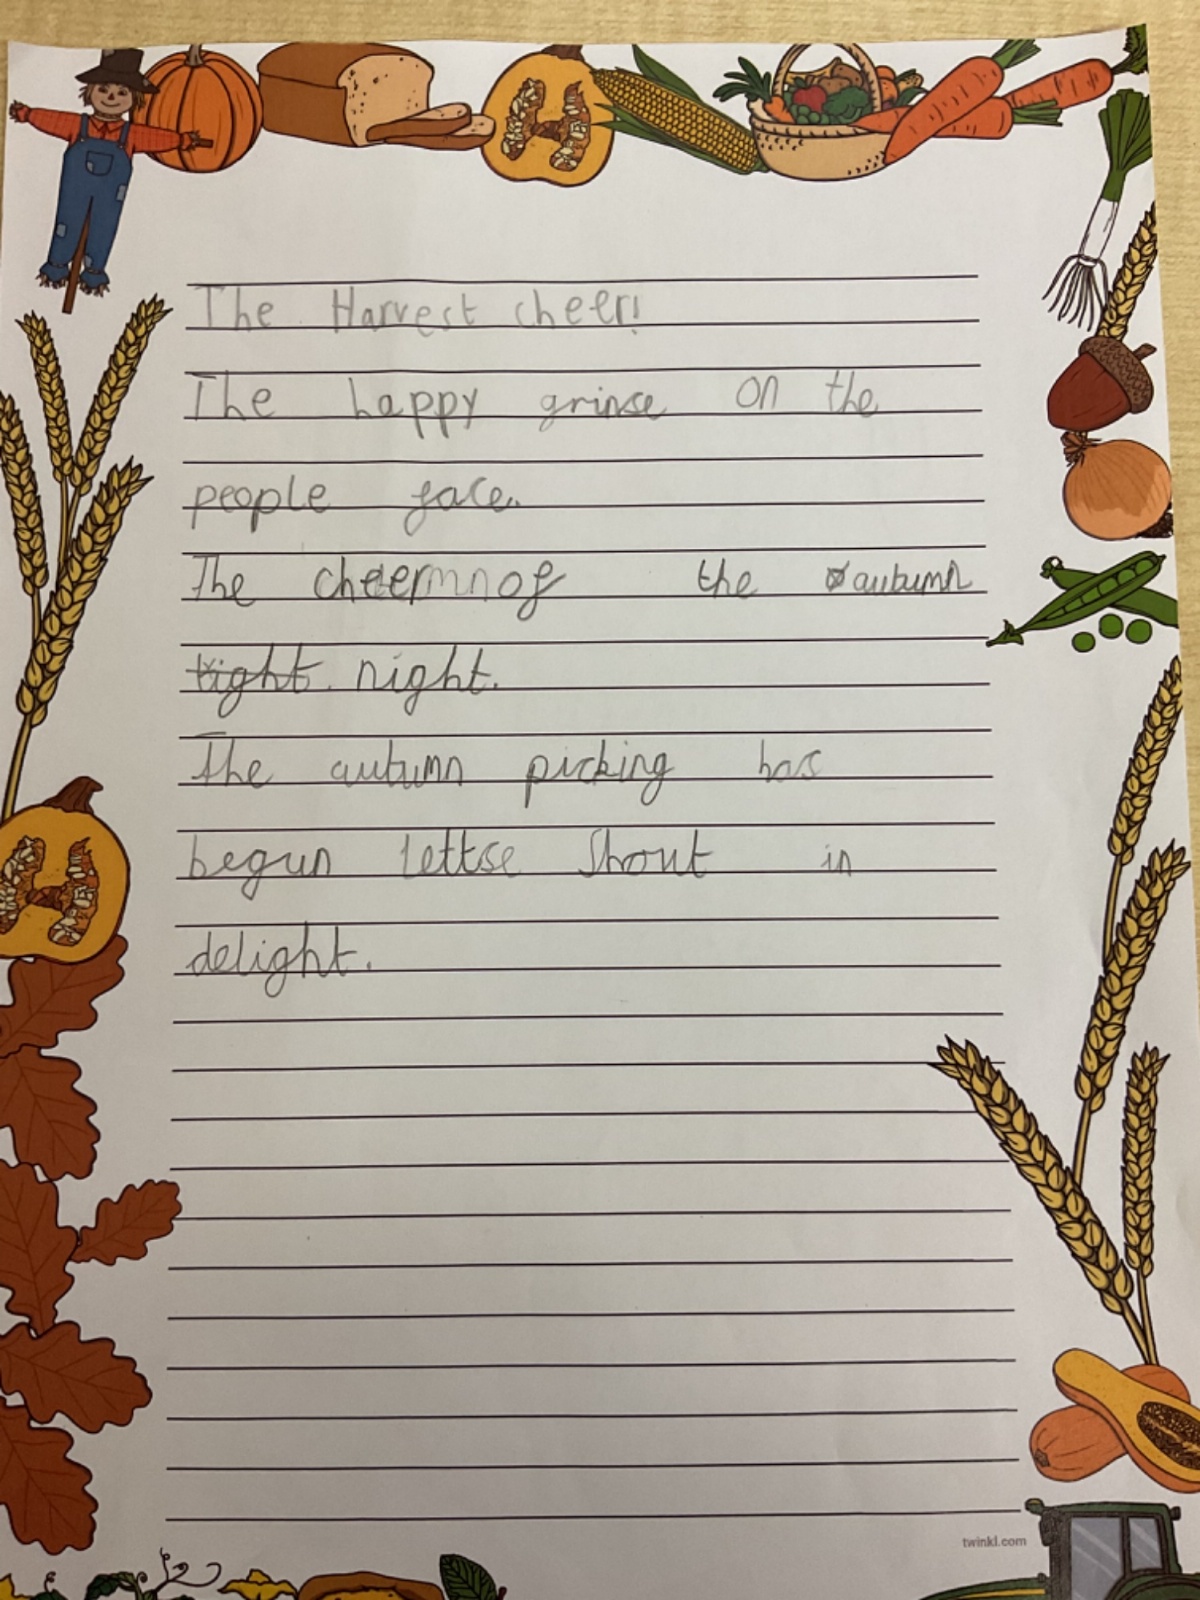 The Harvest cheer!
The happy grinse on the
people face.
The cheermnof the autumn
tight. night.
The autumn picking has
begun lettse Shout in
delight.
twinkl.com